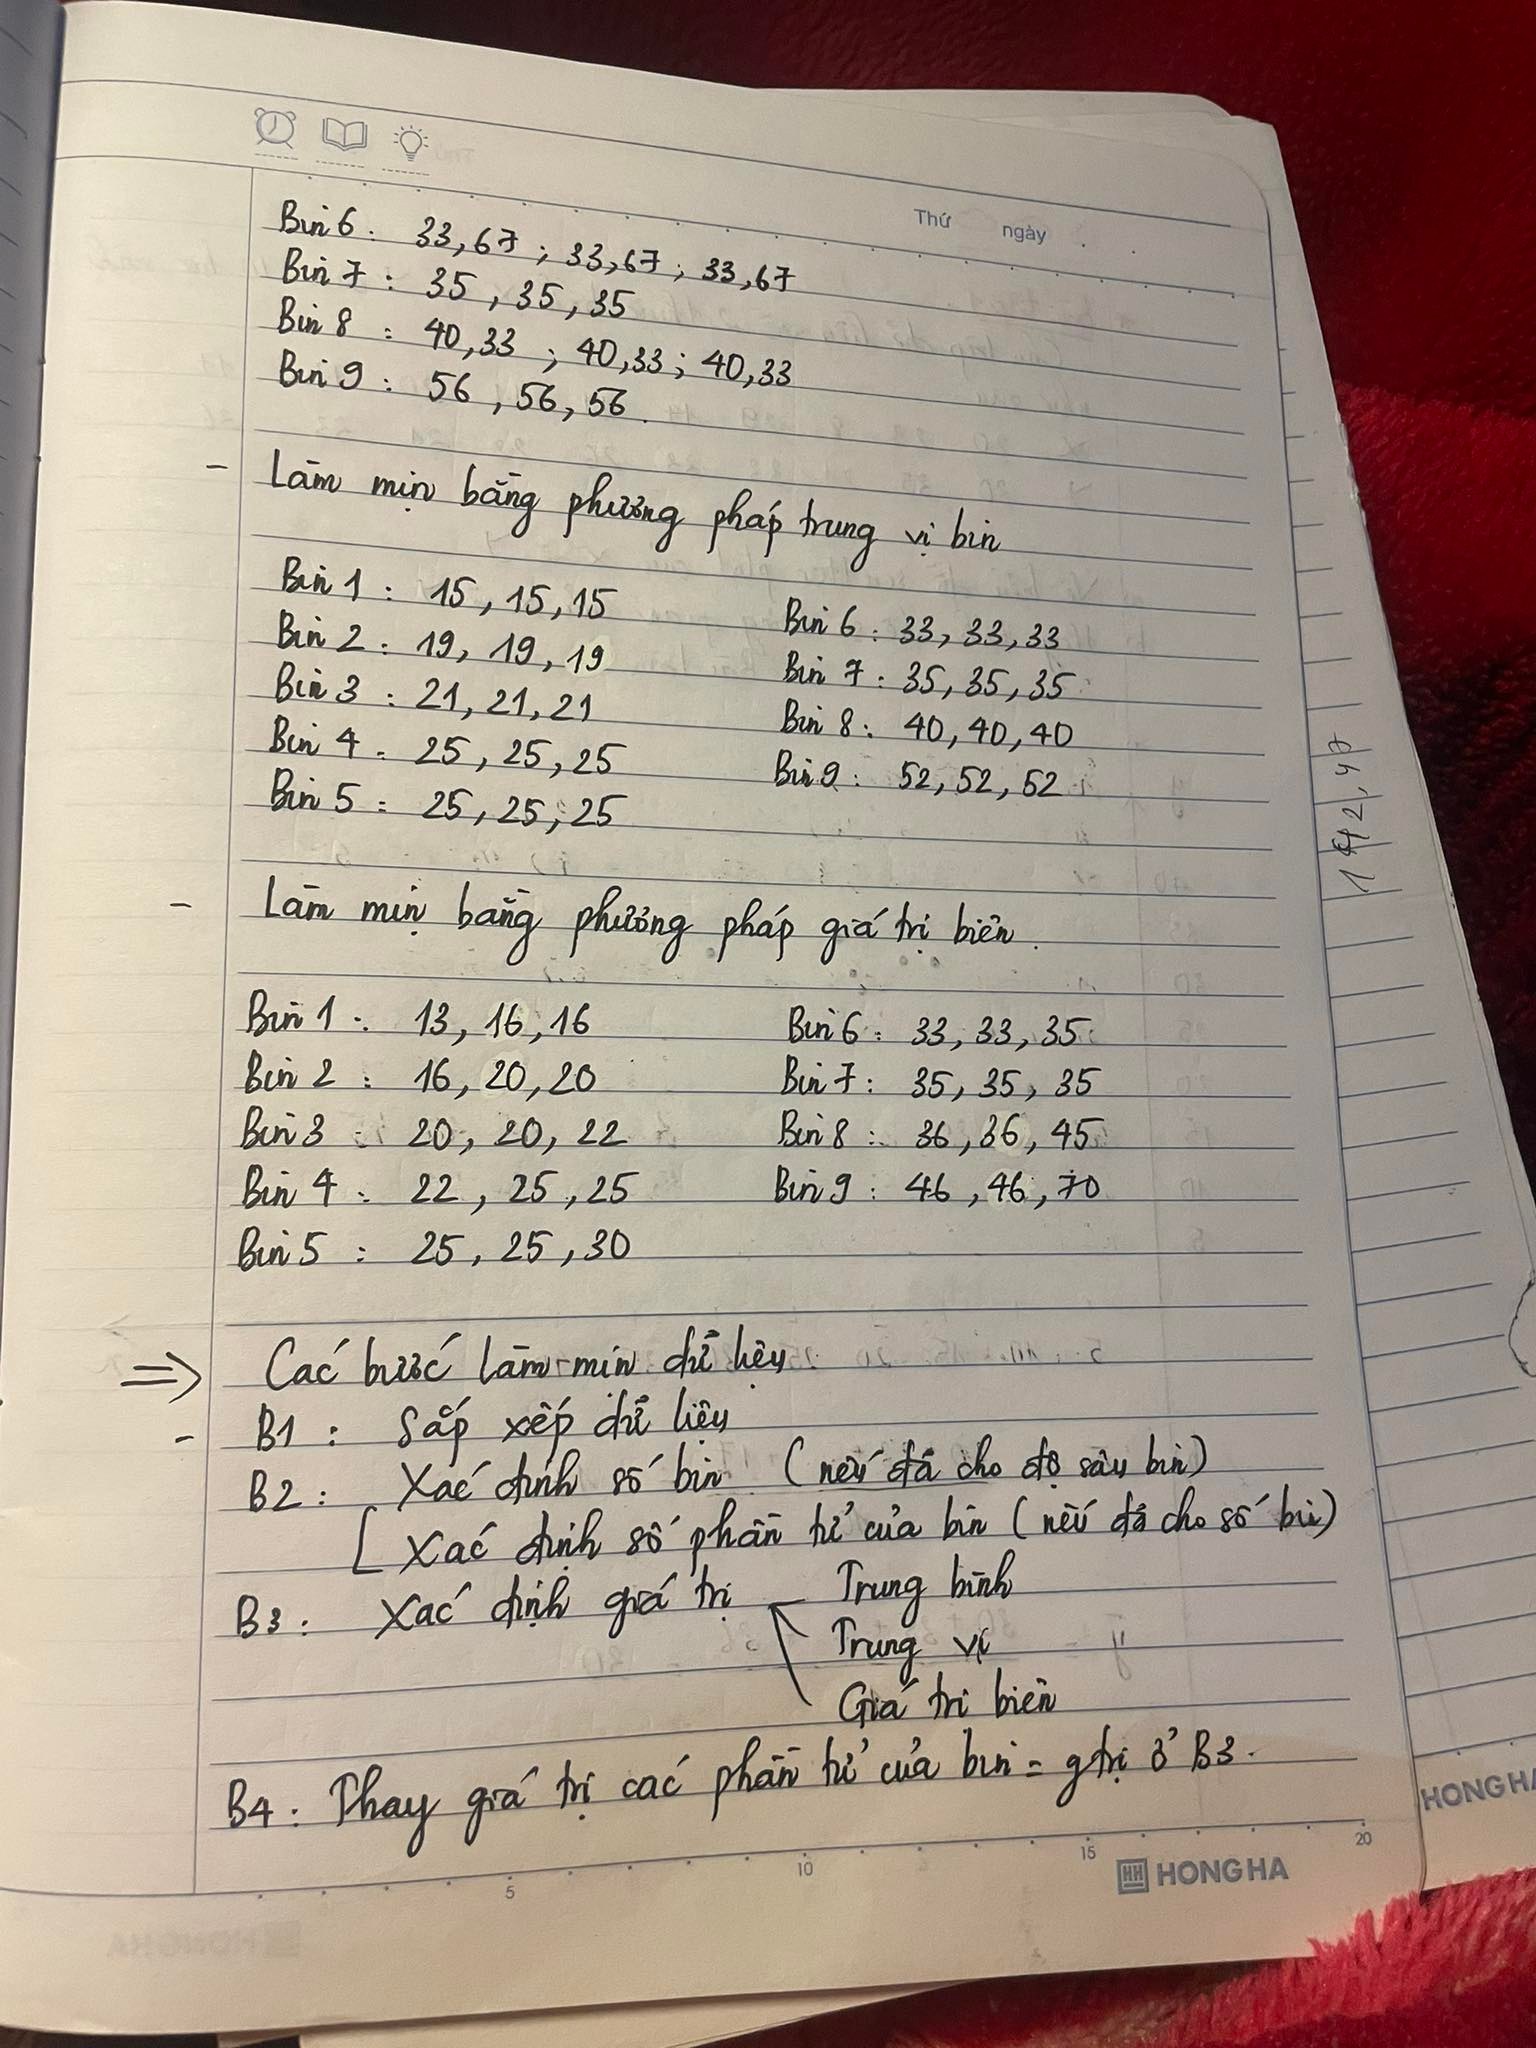 Thứ ngày
Bin 6 : 33,67 ; 33,67 ; 33,67
Bin 7 : 35 , 35 , 35
Bin 8 : 40,33 ; 40,33 ; 40,33
Bin 9 : 56 , 56 , 56.
- Làm mịn bằng phương pháp trung vị bin
Bin 1 : 15 , 15 , 15
Bin 2 : 19, 19, 19
Bin 3 : 21, 21, 21
Bin 4 : 25 , 25 , 25
Bin 5 : 25 , 25 , 25
Bin 6 : 33, 33, 33
Bin 7 : 35, 35, 35
Bin 8 : 40, 40, 40
Bin 9 : 52, 52, 52
- Làm mịn bằng phương pháp giá trị biên.
Bin 1 : 13, 16, 16
Bin 2 : 16, 20, 20
Bin 3 : 20, 20, 22
Bin 4 : 22 , 25 , 25
Bin 5 : 25 , 25 , 30
Bin 6 : 33, 33, 35
Bin 7 : 35, 35, 35
Bin 8 : 36, 36, 45
Bin 9 : 46 , 46, 70
=> Các bước làm mịn dữ liệu
- B1 : Sắp xếp dữ liệu
B2 : Xác định số bin (nếu đã cho độ sâu bin)
[ Xác định số phần tử của bin (nếu đã cho số bin)
B3 : Xác định giá trị Trung bình
Trung vị
Giá trị biên
B4 : Thay giá trị các phần tử của bin = gtrị ở B3.
5 10 15 20
HH HONG HA
HONG HA